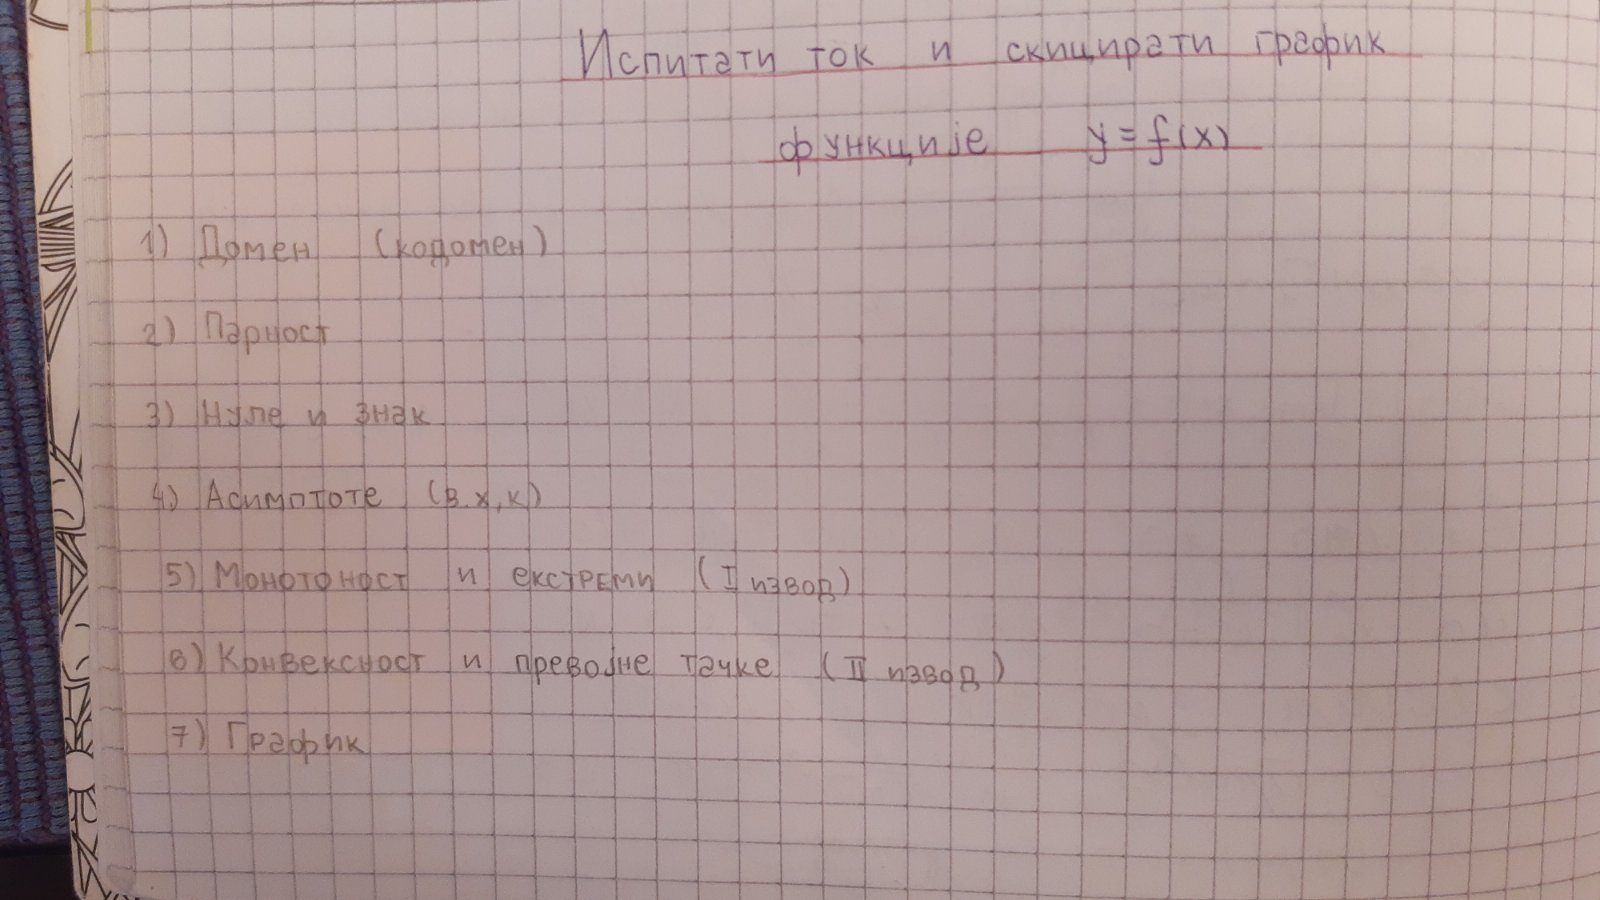 Испитати ток и скицирати график
функције y = f(x)
1) Домен (кодомен)
2) Парност
3) Нуле и знак
4) Асимптоте (в.х,к)
5) Монотоност и екстреми (I извод)
6) Конвексност и превојне тачке (II извод)
7) График